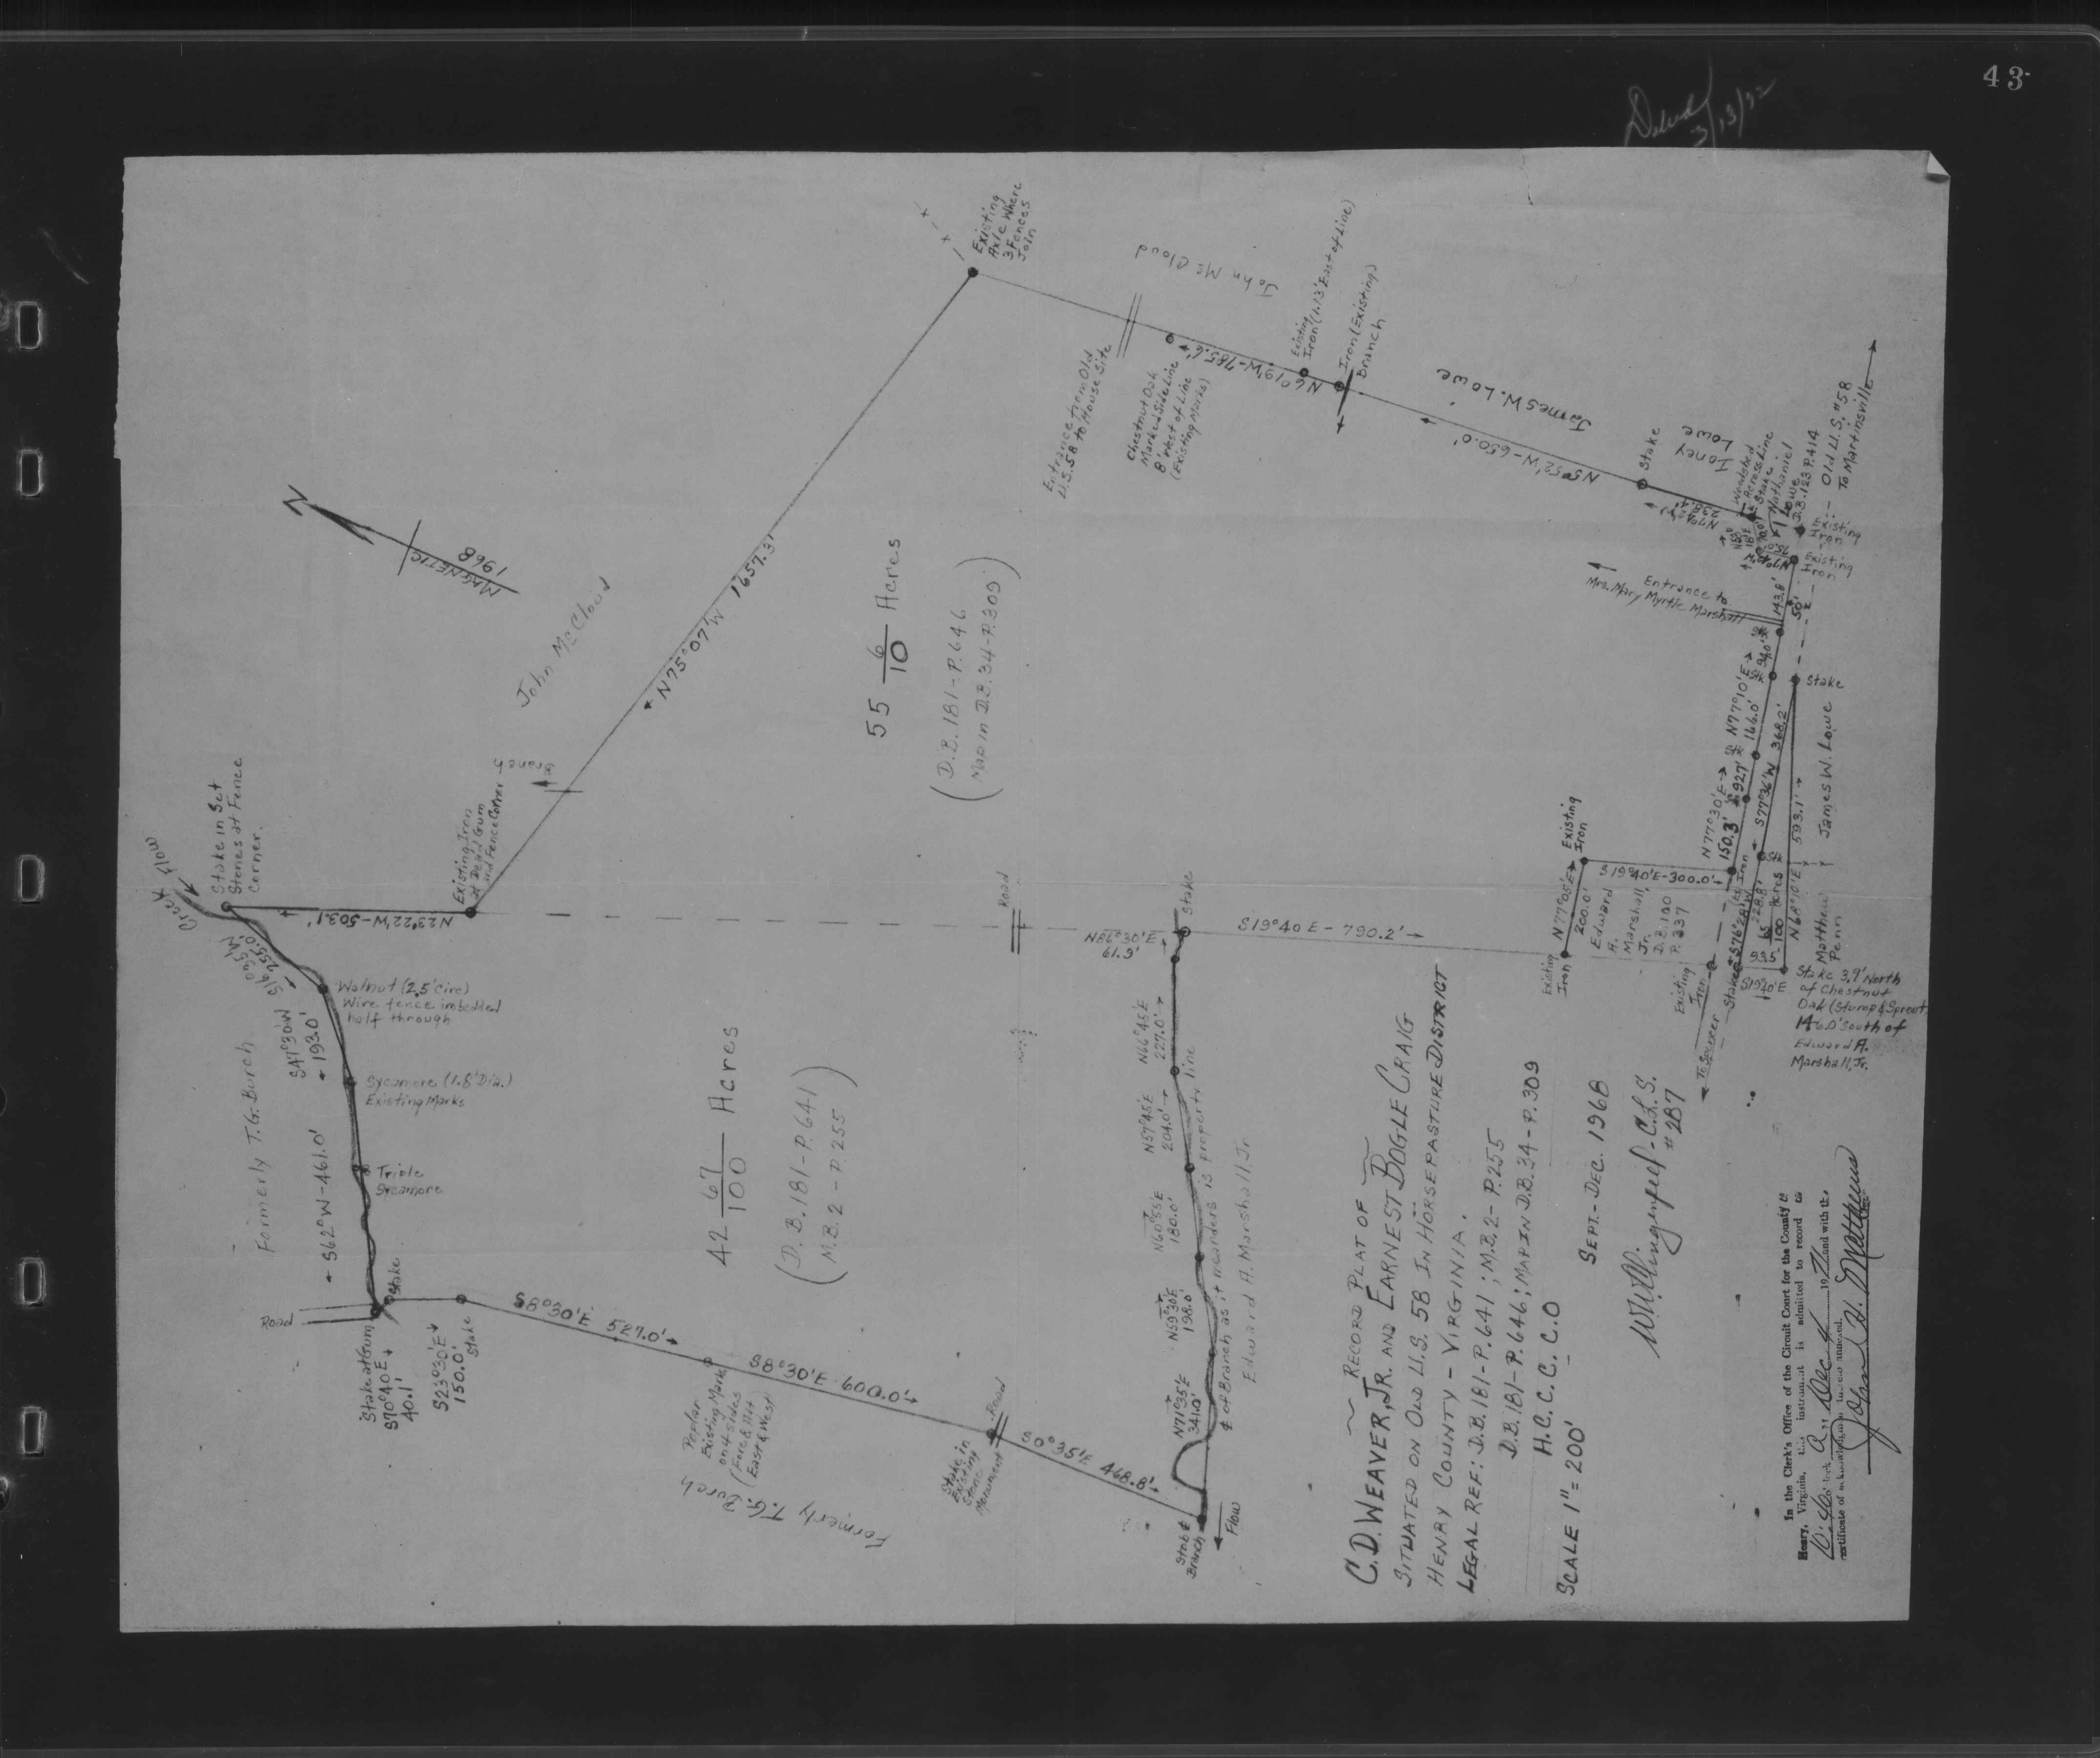 43
3/13/72
Existing
Axle Where
3 Fences
Join
John McCloud
Entrance from Old
U.S. 58 to House Site
Chestnut Oak
Marked Side Line
8' West of Line
(Existing Marks)
N6°19'W-785.6'
Existing
Iron (1.13' East of Line)
Iron (Existing)
Branch
James W. Lowe
N5°52'W-650.0'
Stake
Ioney
Lowe
238.4'
Woodshed
Across Line
Stake
Nathaniel
Lowe
D.B. 123 P. 414
Old U.S. #58
To Martinsville
Existing
Iron
Existing
Iron
Entrance to
Mrs. Mary Myrtle Marshall
143.8'
50'
94.0'
N77°10'E
166.0'
Stake
92.7'
N77°30'E
150.3'
S77°36'W 368.2'
593.1'
James W. Lowe
N
MAGNETIC
1968
John McCloud
N75°07'W 1657.3'
55 6/10 Acres
(D.B. 181-P. 646
Map in D.B. 34-P. 309)
Branch
Creek Flow
Stake in Set
Stones at Fence
Corner.
N23°22'W-503.1'
Existing Iron
at Dead Gum
and Fence Corner
255.0'
Walnut (2.5' Circ)
Wire fence imbedded
half through
S47°30'W
193.0'
Sycamore (1.8' Dia.)
Existing Marks
Formerly T.G. Burch
S62°W-461.0'
Triple
Sycamore
Road
Stake
Stake at Gum
S70°40'E
40.1'
S23°30'E
150.0'
Stake
S8°30'E 527.0'
Poplar
Existing Marks
on 4 sides
(Fore & Aft
East & West)
S8°30'E 600.0'
Formerly T.G. Burch
Stake in
Existing
Stone
Monument
Road
S0°35'E 468.8'
42 67/100 Acres
(D.B. 181-P. 641)
M.B. 2 - P. 255
Road
Stake
N86°30'E
61.9'
N66°45'E
227.0'
N57°45'E
204.0'
N60°55'E
180.0'
N59°30'E
198.0'
N71°35'E
341.0'
Branch
Flow
℄ of Branch as it meanders is property line
Edward A. Marshall, Jr.
S19°40'E - 790.2'
Existing
Iron
N77°05'E
200.0'
Existing
Iron
S19°40'E-300.0'
Edward
A.
Marshall,
Jr.
D.B. 180
P. 337
Existing
Iron
Stake
S76°28'W
228.8'
Acres
93.5'
S19°40'E
N68°10'E
Matthew
Penn
To Spencer
Stake 3.9' North
of Chestnut
Oak (Stump & Sprout
146.0' South of
Edward A.
Marshall, Jr.
RECORD PLAT OF
C.D. WEAVER, JR. AND EARNEST BOGLE CRAIG
SITUATED ON OLD U.S. 58 IN HORSEPASTURE DISTRICT
HENRY COUNTY - VIRGINIA.
LEGAL REF: D.B. 181-P. 641; M.B. 2-P. 255
D.B. 181-P. 646; MAP IN D.B. 34-P. 309
H.C.C.C.C.O
SCALE 1" = 200'
SEPT.-DEC. 1968
C.L.S.
#287
In the Clerk's Office of the Circuit Court for the County of
Henry, Virginia, this instrument is admitted to record at
and with the
certificate of acknowledgment thereto annexed.